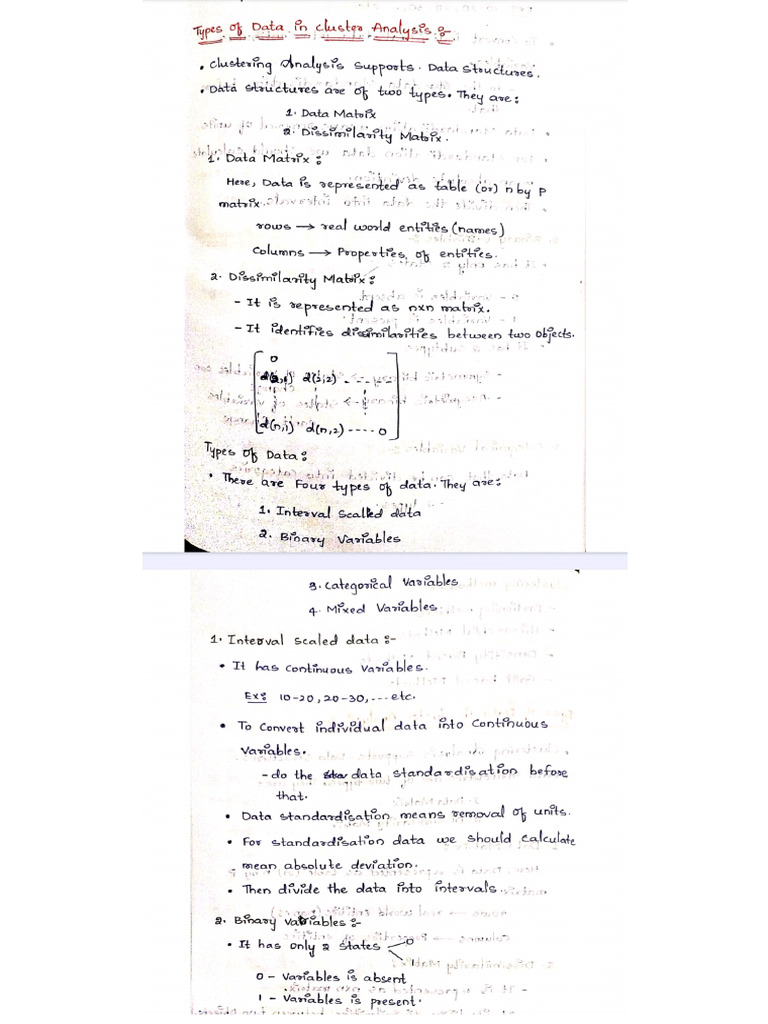 Types of Data in cluster Analysis :-
• clustering Analysis supports. Data structures.
• Data structures are of two types. They are:
1. Data Matrix
2. Dissimilarity Matrix.
1. Data Matrix :
Here, Data is represented as table (or) n by p
matrix.
rows → real world entities (names)
Columns → Properties of entities.
2. Dissimilarity Matrix :
- It is represented as nxn matrix.
- It identifies dissimilarities between two objects.
0
d(2,1) d(2,2) - - - - -
d(n,1) d(n,2) ---- 0
Types of Data :
• There are Four types of data. They are:
1. Interval scaled data
2. Binary variables
3. Categorical variables
4. Mixed Variables
1. Interval scaled data :-
• It has continuous variables.
Ex: 10-20, 20-30, ... etc.
• To convert individual data into continuous
variables.
- do the data standardisation before
that.
• Data standardisation means removal of units.
• For standardisation data we should calculate
mean absolute deviation.
• Then divide the data into intervals.
2. Binary variables :-
• It has only 2 states 0
1
0 - Variables is absent
1 - Variables is present.